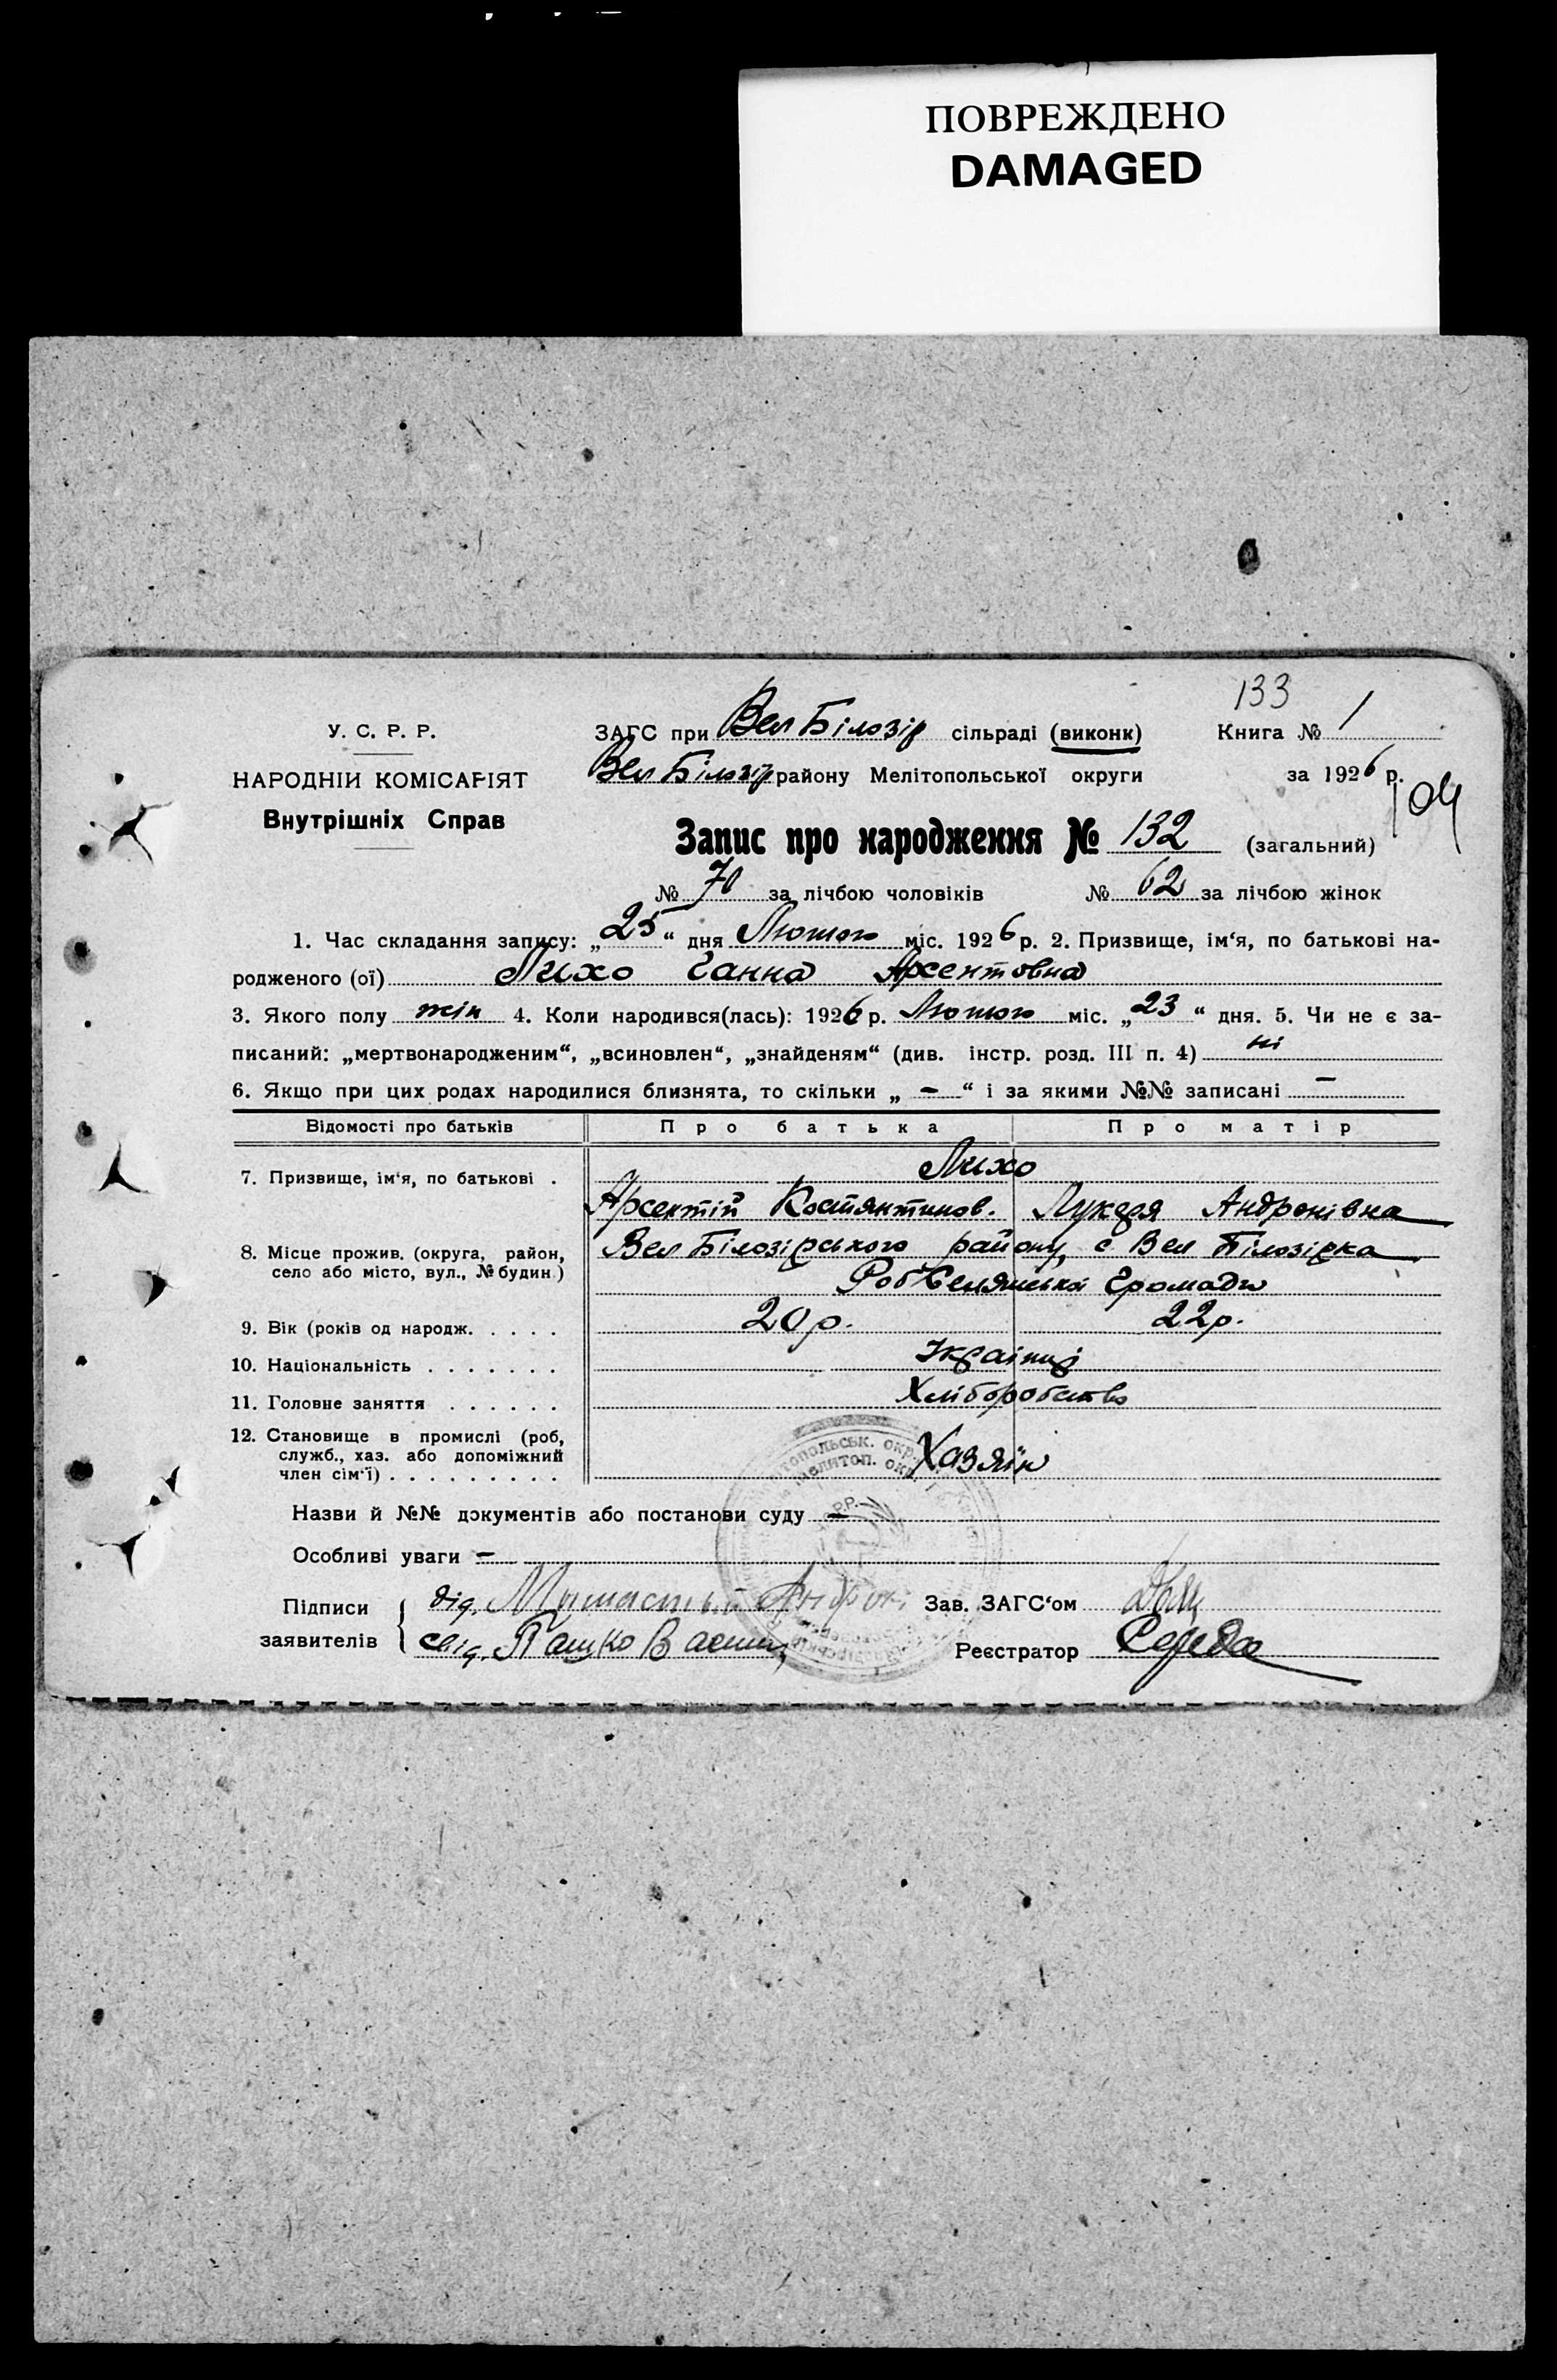 ПОВРЕЖДЕНО
DAMAGED
133
У. С. Р. Р.
ЗАГС при Вел Білозір сільраді (виконк)
Книга № 1
НАРОДНІЙ КОМІСАРІЯТ
Вел Білозір району Мелітопольської округи
за 1926 р.
Внутрішніх Справ
104
Запис про народження № 132 (загальний)
№ 70 за лічбою чоловіків № 62 за лічбою жінок
1. Час складання запису: „25“ дня Лютого міс. 1926 р. 2. Призвище, ім‘я, по батькові на-
родженого (ої) Лихо Ганна Арсентовна
3. Якого полу жін 4. Коли народився(лась): 1926 р. Лютого міс. „23“ дня. 5. Чи не є за-
писаний: „мертвонародженим“, „всиновлен“, „знайденям“ (див. інстр. розд. III п. 4) ні
6. Якщо при цих родах народилися близнята, то скільки „ - “ і за якими №№ записані -
Відомості про батьків Про батька Про матір
7. Призвище, ім‘я, по батькові . Лихо
Арсентій Костянтинов. Лукеря Андронівна
8. Місце прожив. (округа, район, село або місто, вул., № будин.) Вел Білозірського району, с Вел Білозірка
Громади
9. Вік (років од народж. . . . . 20 р. 22 р.
10. Національність . . . . . . . Українці
11. Головне заняття . . . . . . Хліборобство
12. Становище в промислі (роб, служб., хаз. або допоміжний член сім‘ї) . . . . . . . . . Хазяїн
Назви й №№ документів або постанови суду -
Особливі уваги -
Підписи заявителів
дід.
Зав. ЗАГС‘ом
свід. Пашко Васил
Реєстратор Середа